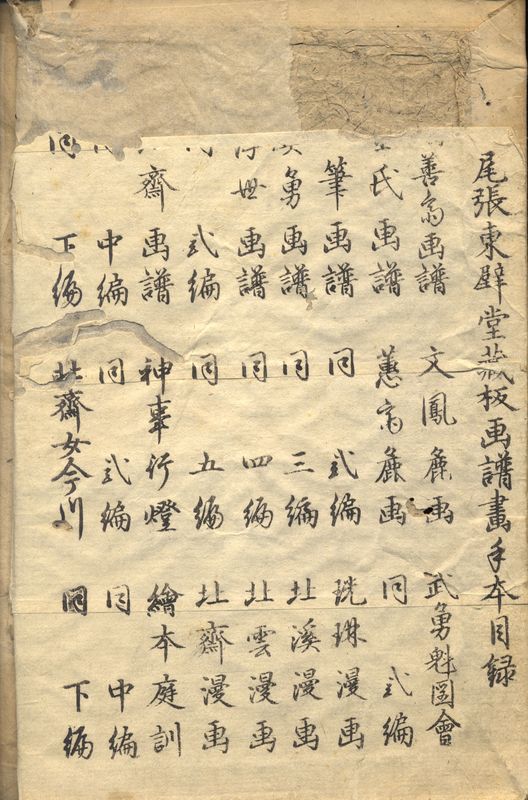 尾張東壁堂蔵板画譜畫手本目録
善斎画譜 文鳳麁画 武勇魁圖會
氏画譜 蕙斎麁画 同 弐編
筆画譜 同 弐編 珖琳漫画
勇画譜 同 三編 北溪漫画
世画譜 同 四編 北雲漫画
弐編 同 五編 北齋漫画
齋画譜 神事行燈 繪本庭訓
中編 同 弐編 同 中編
同 下編 北齋女今川 同 下編